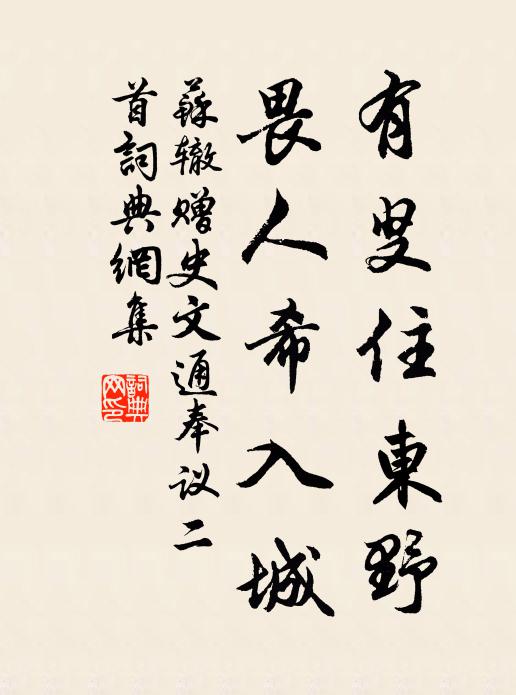 有叟住東野
畏人希入城
蘇辙赠史文通奉议二
首詞典網集
詞典
网印